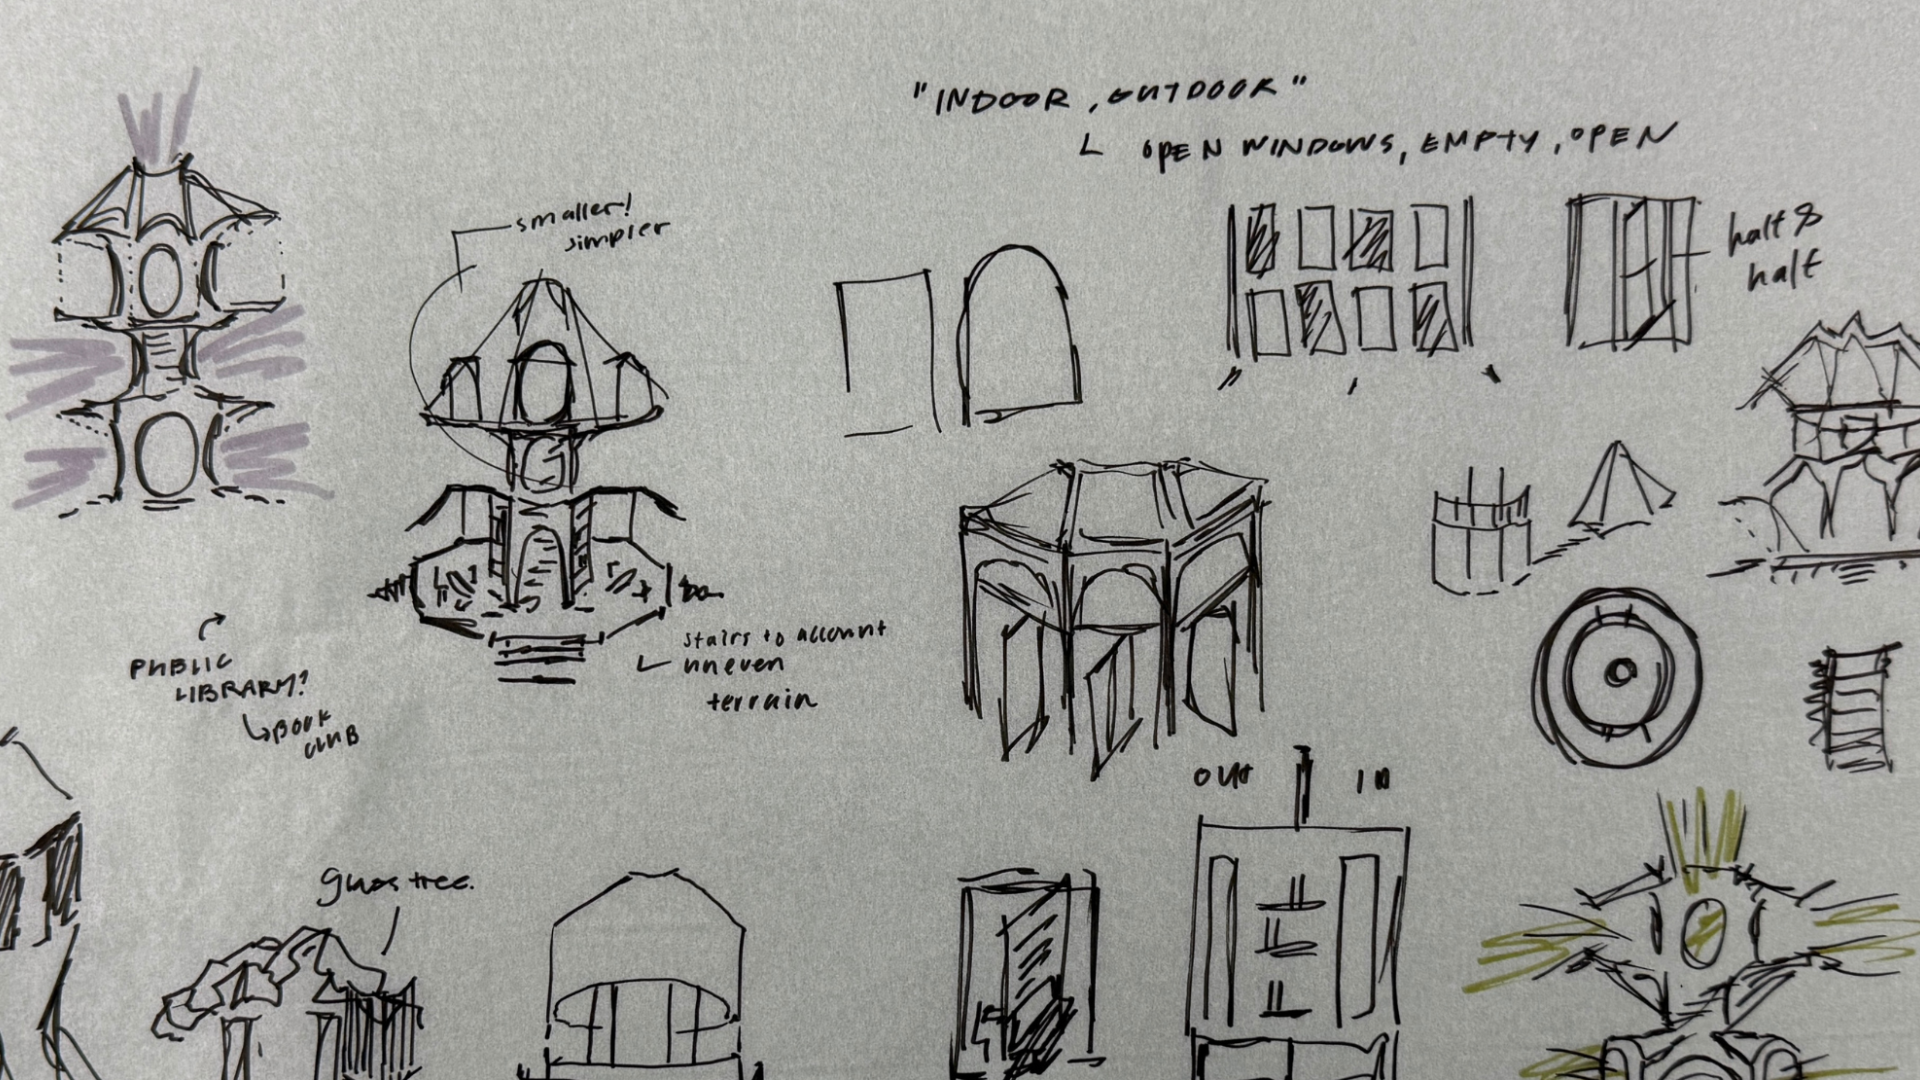 "INDOOR, OUTDOOR"
OPEN WINDOWS, EMPTY, OPEN
smaller!
simpler
half &
half
stairs to account
uneven
terrain
PUBLIC
LIBRARY?
BOOK
CLUB
OUT IN
tree.